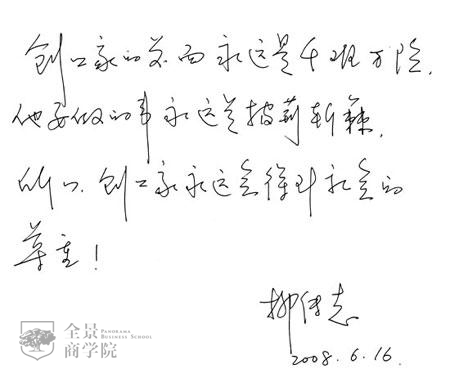 创业家的前面永远是千难万险，
他要做的事永远是披荆斩棘，
所以，创业家永远会得到社会的
尊重！
柳传志
2008.6.16.
全景
商学院
PANORAMA
BUSINESS SCHOOL